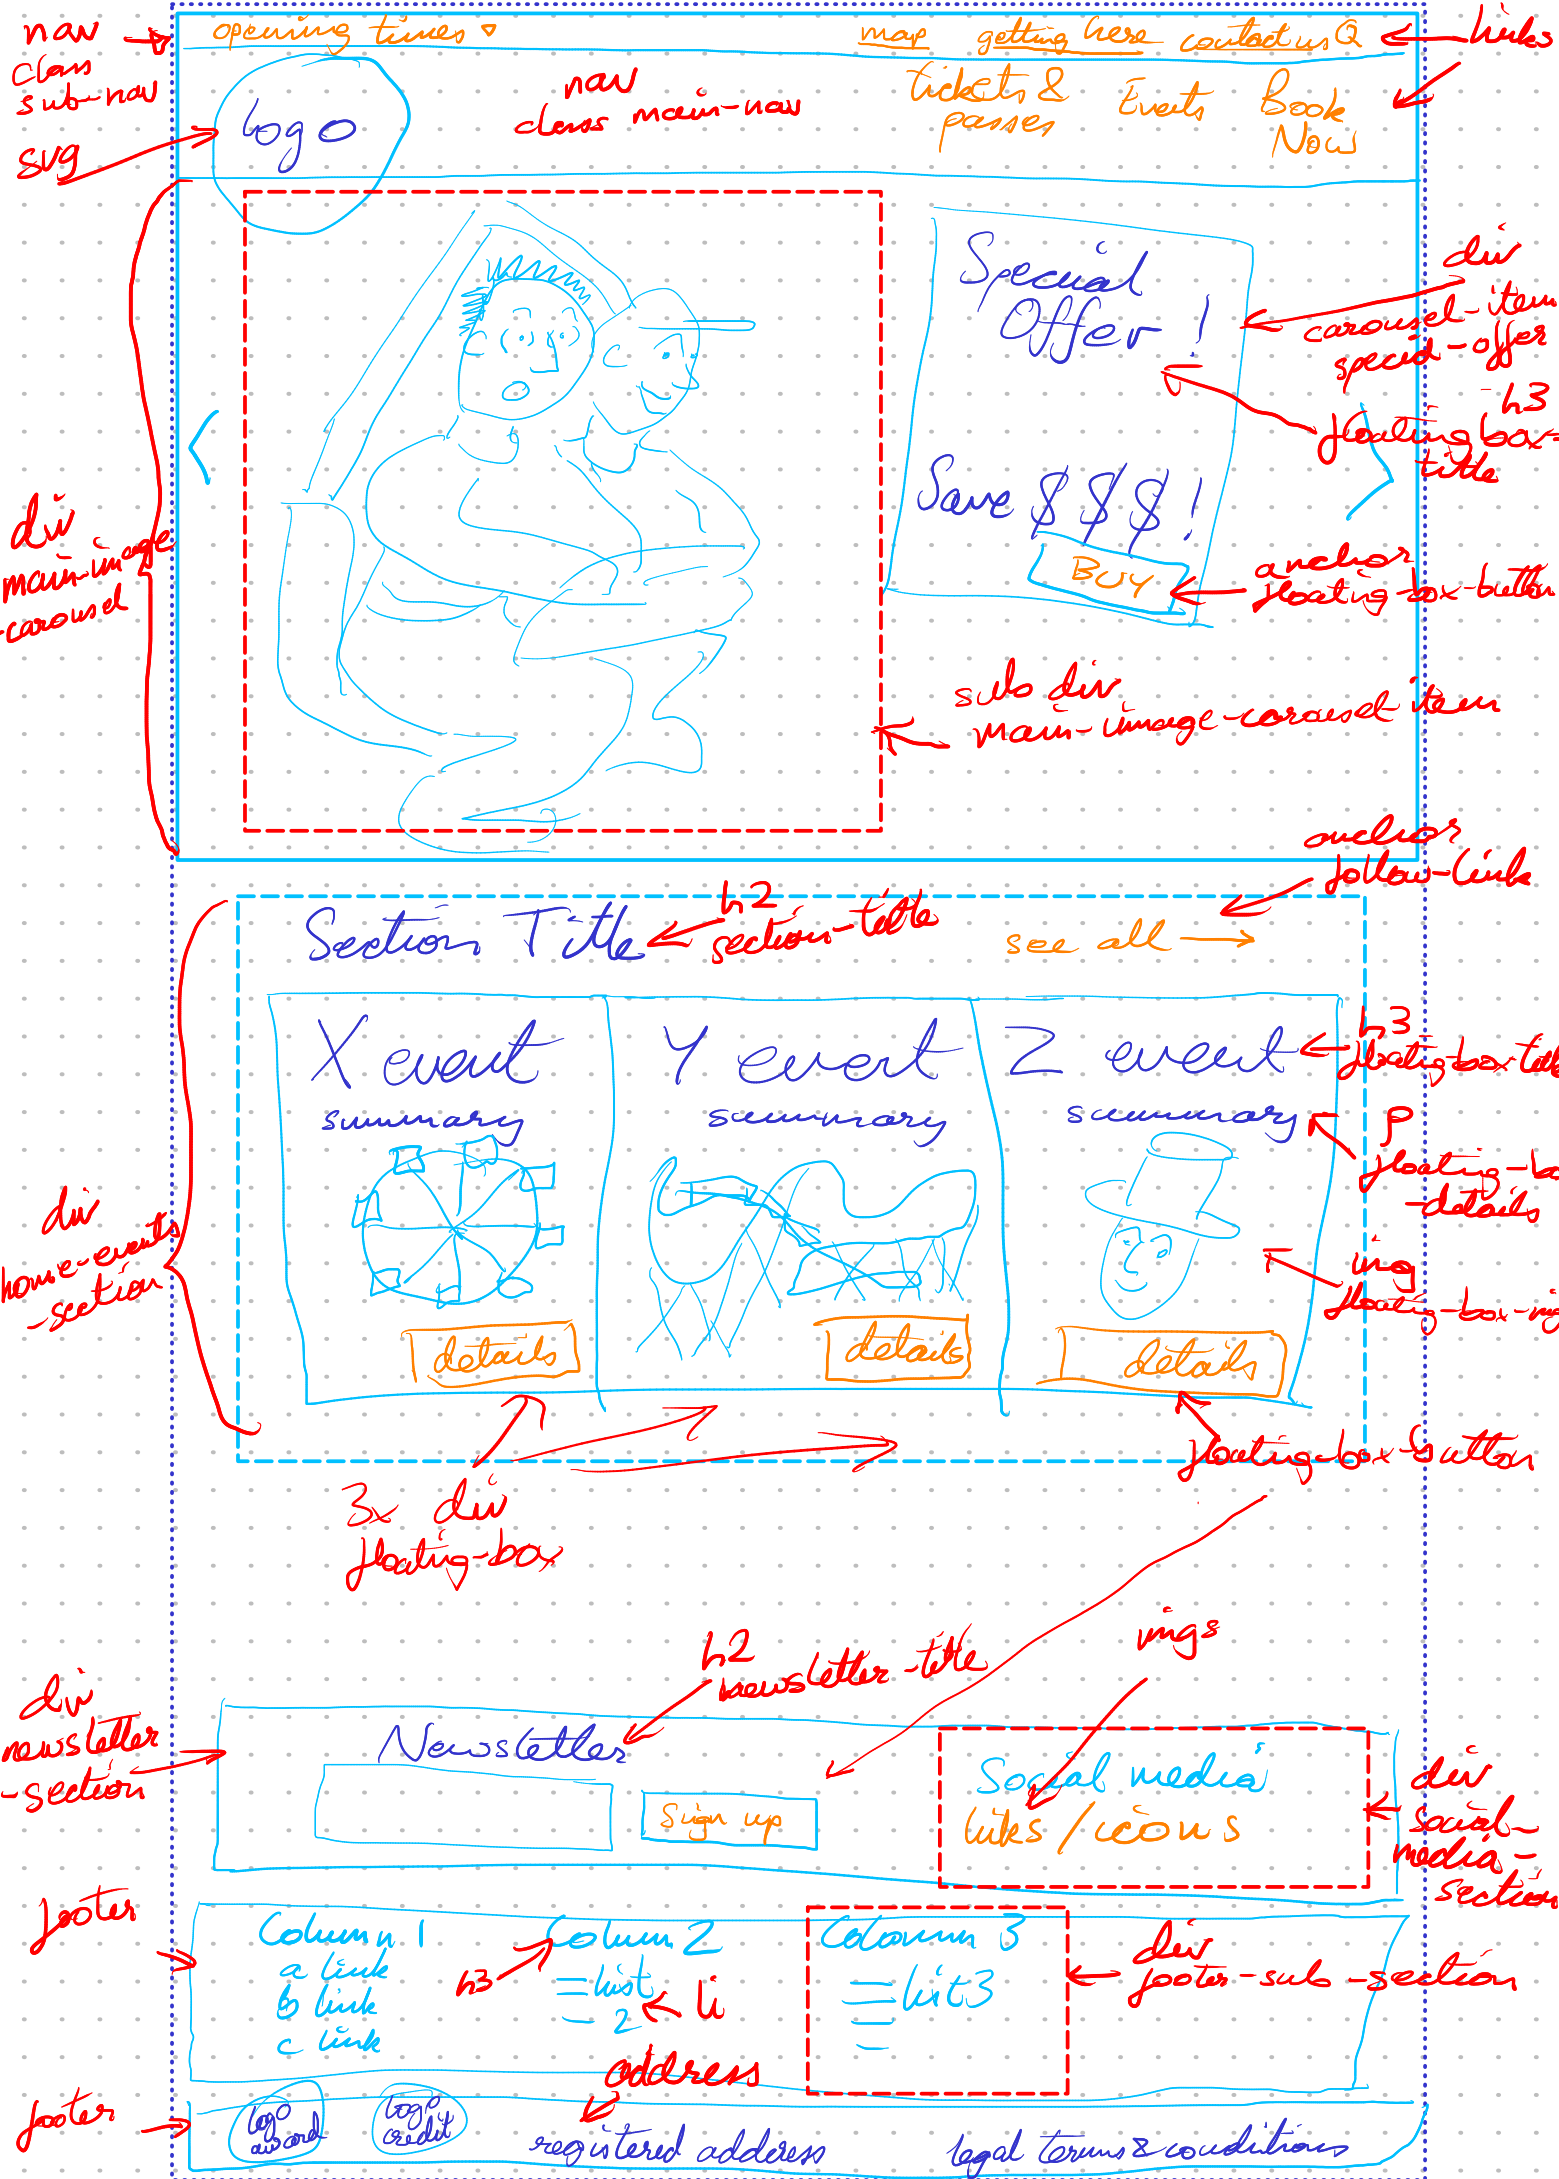 nav
class
sub-nav
opening times
map
getting here
contact us
links
svg
logo
nav
class main-nav
tickets &
passes
Events
Book
Now
Special
Offer !
div
carousel-item
special-offer
h3
floating box-
title
Save $$$!
BUY
anchor
floating-box-button
div
main-image
-carousel
sub div
main-image-carousel-item
anchor
follow-link
Section Title
h2
section-title
see all
X event
summary
details
Y event
summary
details
Z event
summary
details
h3
floating-box-title
p
floating-bo
-details
img
floating-box-img
div
home-events
-section
floating-box-button
3x div
floating-box
imgs
h2
newsletter-title
div
newsletter
-section
Newsletter
Sign up
Social media
links/icons
div
social-
media-
section
footer
Column 1
a link
b link
c link
h3
Column 2
list
2
li
Coloumn 3
list3
div
footer-sub-section
address
footer
logo
award
logo
credit
registered address
legal terms & conditions